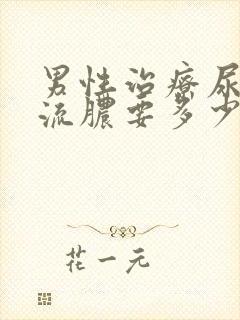 男性治療尿
流膿要多少
花一元